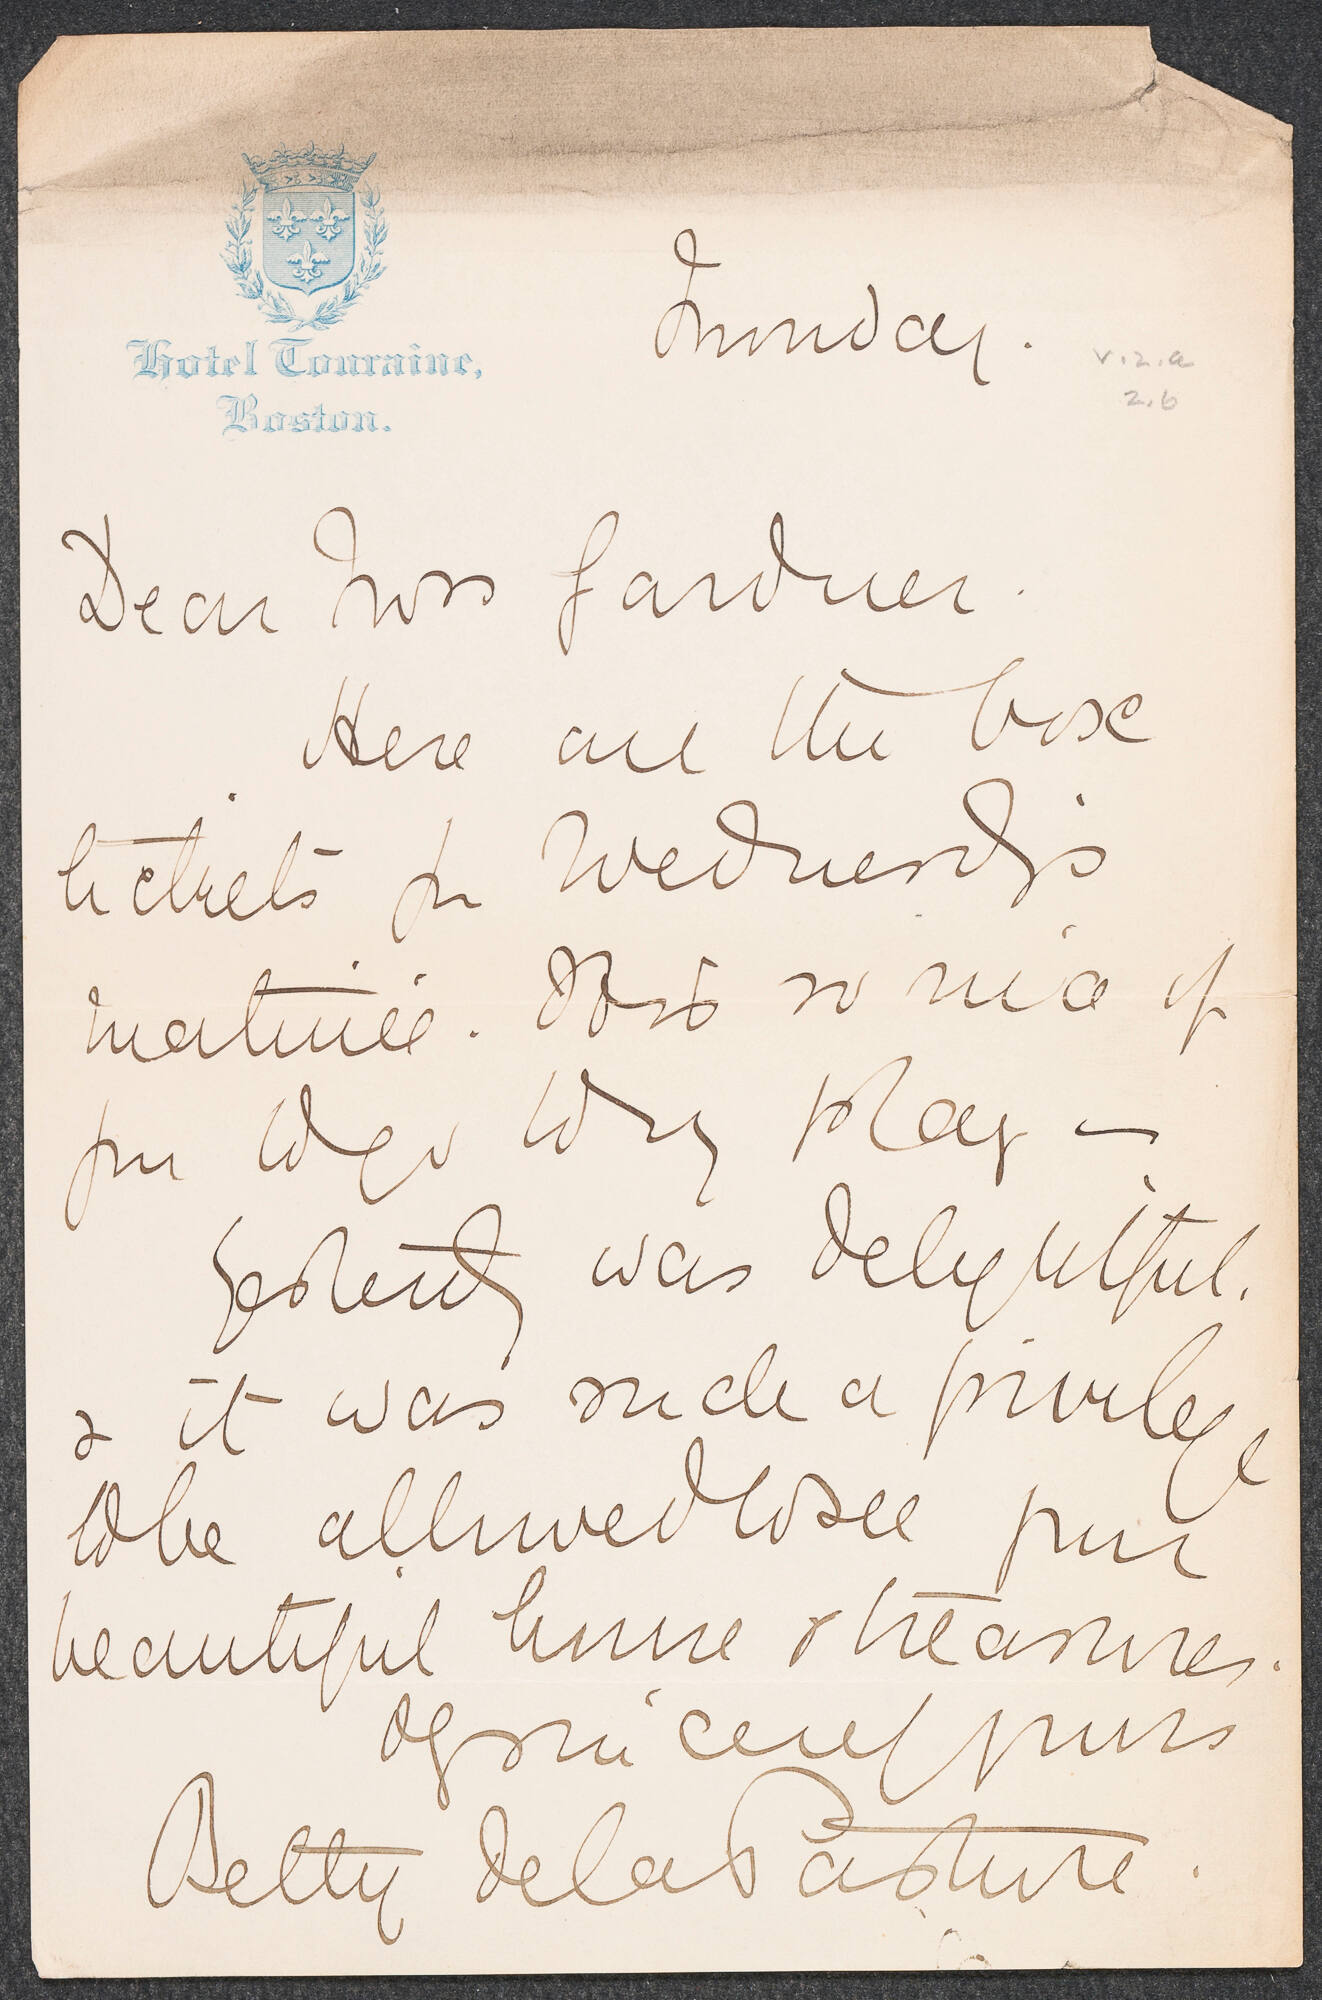 Hotel Touraine,
Boston.
Monday.
v.2.a
2.b
Dear Mrs Gardner.
Here are the box
tickets for Wednesdy's
matinée. It is so nice of
you to go to my play —
Yesterdy was delightful.
& it was such a privilege
to be allowed to see your
beautiful house & treasures.
yours
Betty de la Pasture.